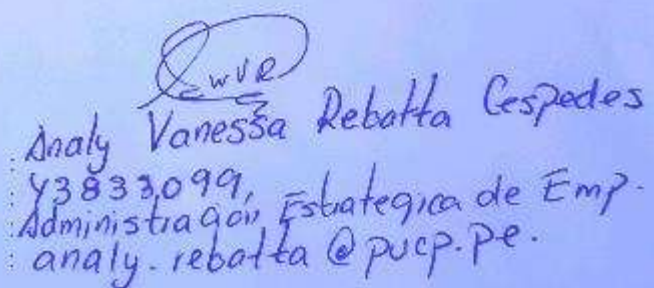 Analy Vanessa Rebatta Cespedes
43833099,
Administración Estrategica de Emp.
analy.rebatta@pucp.pe.